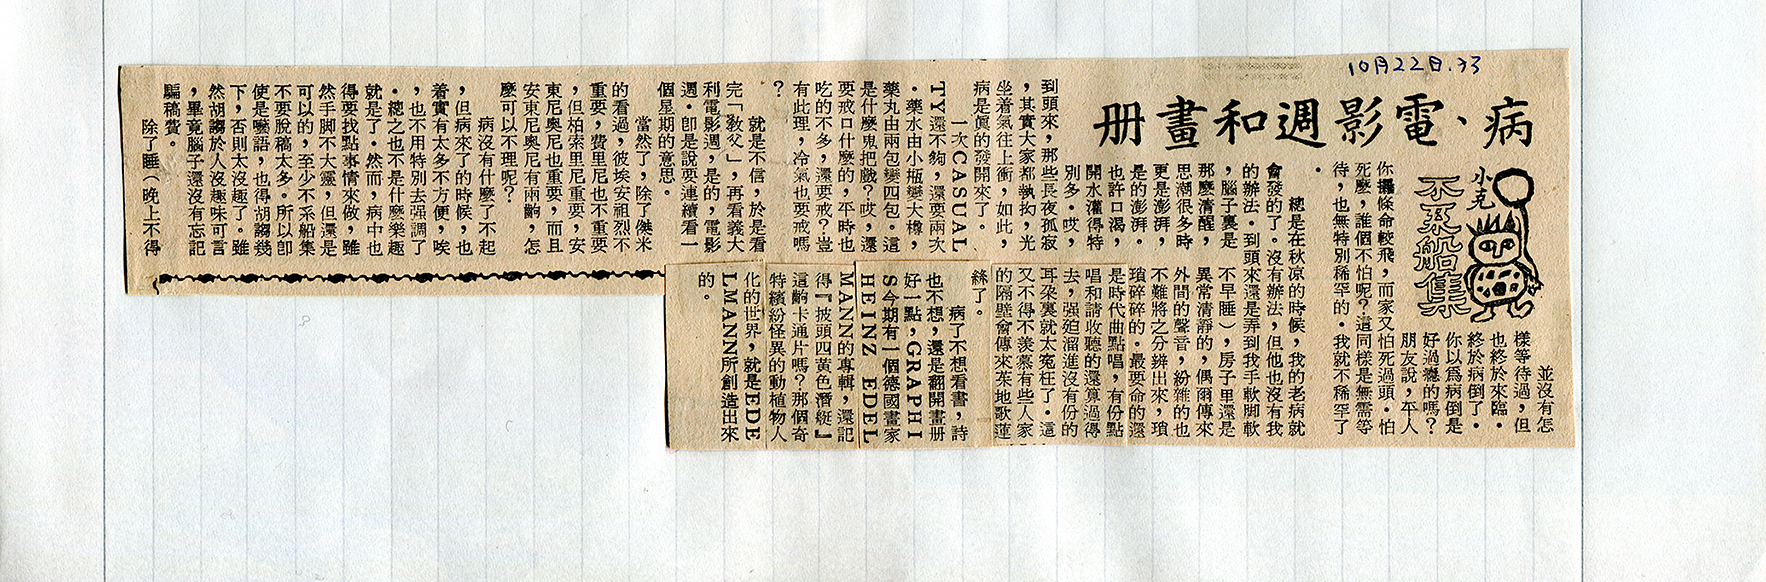 10月22日.73
病、電影週和畫册
小克
不系船集
並沒有怎
樣等待過，但
也終於來臨．
終於病倒了．
你以爲病倒是
好過癮的嗎？
朋友說，平人
你攞條命較飛，而家又怕死過頭．怕
死麽，誰個不怕呢？這同樣是無需等
待，也無特別稀罕的．我就不稀罕了
．
總是在秋凉的時候，我的老病就
會發的了。沒有辦法，但他也沒有我
的辦法．到頭來還是弄到我手軟脚軟
，腦子裏是
那麽清醒，
思潮很多時
更是澎湃，
是的澎湃．
也許口渴，
開水灌得特
別多．哎，
到頭來，那些長夜孤寂
，其實大家都執拘，光
坐着氣往上衝，如此，
病是眞的發開來了。
一次CASUAL
TY還不夠，還要兩次
．藥水由小瓶變大樽，
藥丸由兩包變四包。這
是什麽鬼把戲？哎，還
要戒口什麽的，平時也
吃的不多，還要戒？豈
有此理，冷氣也要戒嗎
？
就是不信，於是看
完「敎父」，再看義大
利電影週，是的，電影
週．卽是說要連續看一
個星期的意思。
當然了，除了傑米
的看過，彼埃安祖烈不
重要，費里尼也不重要
，但柏索里尼重要，安
東尼奧尼也重要，而且
安東尼奧尼有兩齣，怎
麽可以不理呢？
病沒有什麽了不起
，但病來了的時候，也
着實有太多不方便，唉
，也不用特別去强調了
．總之也不是什麽樂趣
就是了．然而，病中也
得要找點事情來做，雖
然手脚不大靈，但還是
可以的，至少不系船集
不要脫稿太多。所以卽
使是囈語，也得胡謅幾
下，否則太沒趣了。雖
然胡謅於人沒趣味可言
，畢竟腦子還沒有忘記
騙稿費。
除了睡（晚上不得
不早睡），房子里還是
異常清靜的，偶爾傳來
外間的聲音，紛雜的也
不難將之分辨出來，瑣
瑣碎碎的．最要命的還
是時代曲點唱，有份點
唱和請收聽的還算過得
去，强廹溜進沒有份的
耳朶裏就太寃枉了．這
又不得不羨慕有些人家
的隔壁會傳來茱地歌蓮
絲了。
病了不想看書，詩
也不想，還是翻開畫册
好一點，GRAPHI
S今期有一個德國畫家
HEINZ EDEL
MANN的專輯，還記
得『披頭四黃色潛艇』
這齣卡通片嗎？那個奇
特繽紛怪異的動植物人
化的世界，就是EDE
LMANN所創造出來
的。